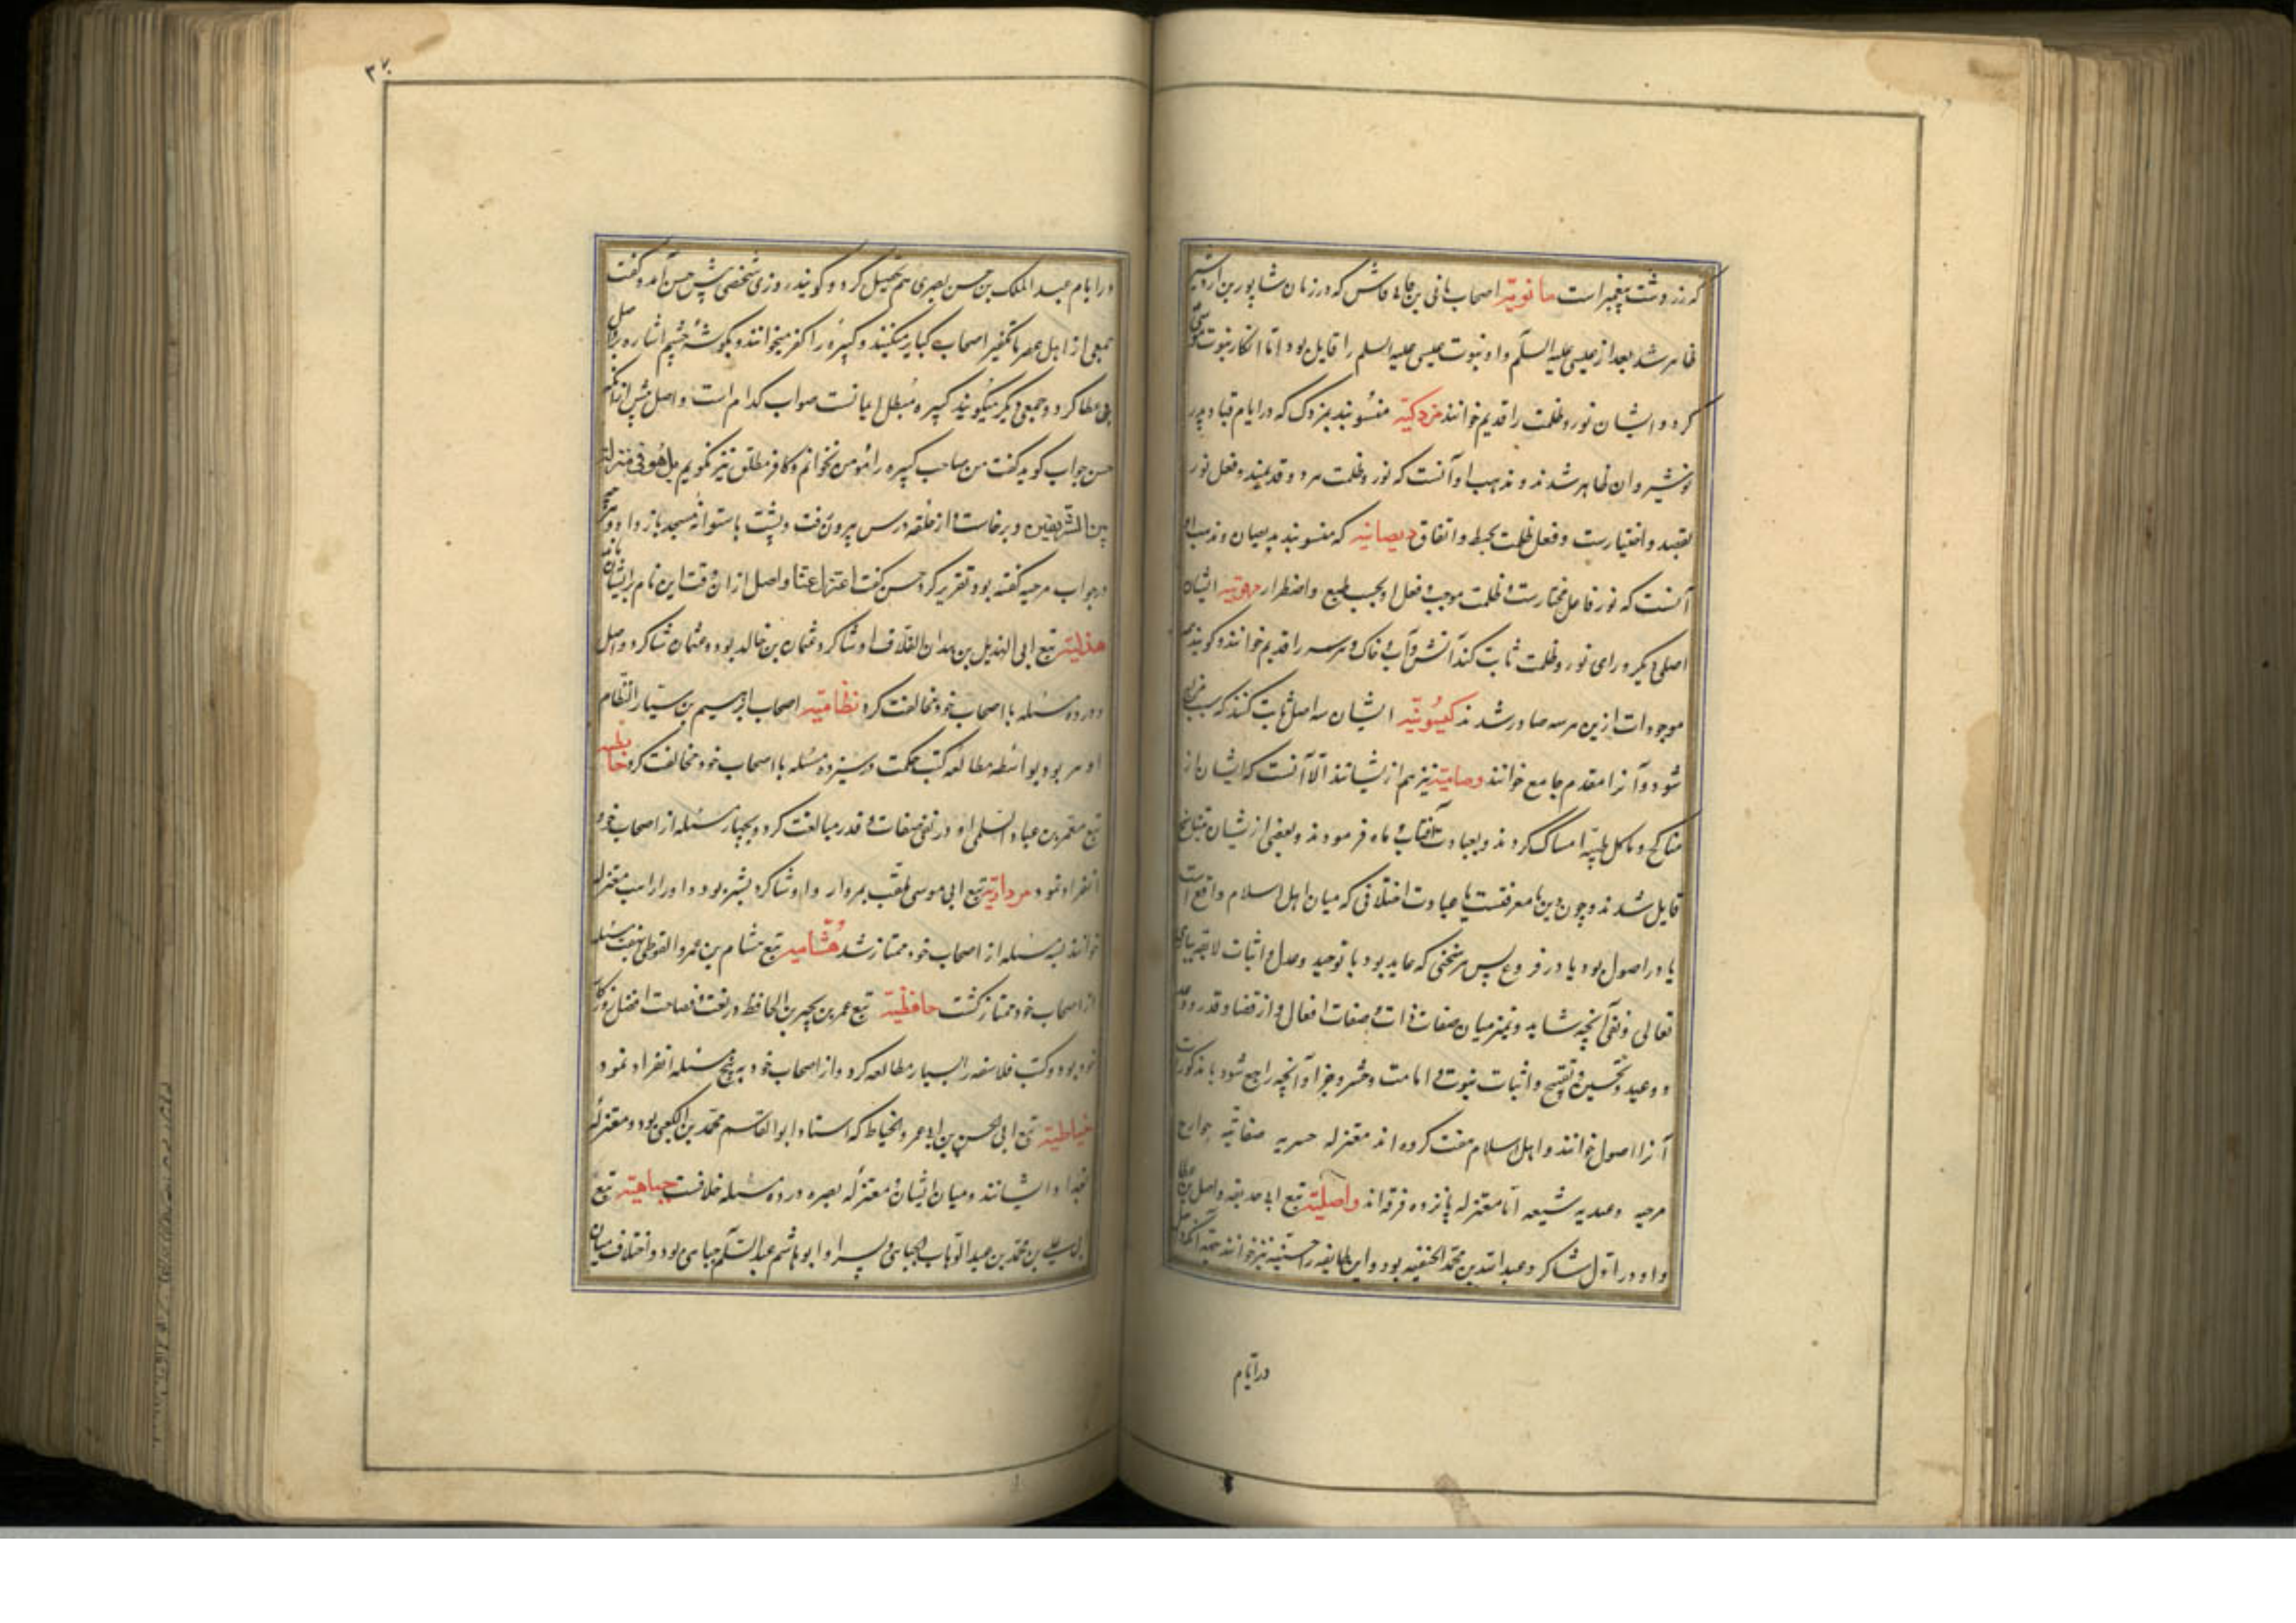 که زردشت پیغمبر است مانویه اصحاب مانی بن فاش که در زمان شاپور بن اردشیر
ظاهر شد بعد از عیسی علیه السلم و او نبوت عیسی علیه السلم را قایل بود اما انکار نبوت موسی
کرد و ایشان نور و ظلمت را قدیم خوانند مزدکیه منسوبند بمزدک که در ایام قباد پدر
نوشیروان ظاهر شدند و مذهب او آنست که نور و ظلمت هر دو قدیمند و فعل نور
بقصد و اختیارست و فعل ظلمت بخبط و اتفاق دیصانیه که منسوبند بدیصان و مذهب او
آنست که نور فاعل مختارست و ظلمت موجب و فعل او بحسب طبع و اضطرار مرقونیه ایشان
اصلی دیگر ورای نور و ظلمت ثابت کنند آتش و آب و خاک هر سه را قدیم خوانند و گویند
موجودات ازین هر سه صادر شدند کینویه ایشان سه اصل ثابت کنند که سبب مزاج
شود و آنرا مقدم جامع خوانند و صامیه نیز هم ازیشانند الا آنست که ایشان از
مناکح و ماکل طیبه امساک کردند و بعبادت آفتاب و ماه فرمودند و بعضی ازیشان بتناسخ
قایل شدند و چون دین با معرفتست یا عبادت اختلافی که میان اهل اسلام واقع است
یا در اصول بود یا در فروع پس هر سخنی که عاید بود با توحید و عدل و اثبات
تعالی و نفی آنچه نشاید و تمیز میان صفات ذات و صفات افعال و از قضا و قدر و وعد
و وعید و تحسین و تقبیح و اثبات نبوت و امامت و حشر و جزا و آنچه راجع شود با مذکورات
آنرا اصول خوانند و اهل اسلام هفت کروه اند معتزله جبریه صفاتیه خوارج
مرجیه وعیدیه شیعه اما معتزله پانزده فرقه اند واصلیه تبع ابی حذیفه واصل بن عطا
و او در اول شاکرد عبدالله بن محمد الحنفیه بود و این طایفه را حسنیه نیز خوانند بجهة آنکه واصل
در ایام
۳۷
در ایام عبدالملک بن حسن بصری هم تحصیل کرد و گویند روزی شخصی پیش حسن آمد و گفت
جمعی از اهل عصر ما تکفیر اصحاب کبایر میکنند و کبیره را کفر میخوانند و بگوشه چشم اشاره بواصل
بن عطا کرد و جمعی دیگر میگویند کبیره مبطل ایمان نیست صواب کدام است واصل پیش از آنکه
حسن جواب گوید گفت من صاحب کبیره را مومن نخوانم و کافر مطلق نیز نگویم بل هو فی منزلة
بین المنزلتین و برخاست و از حلقه درس بیرون رفت و پشت باستوانه مسجد باز داد و هرچه
در جواب مرجیه گفته بود تقریر کرد حسن گفت اعتزل عنا واصل از آن وقت این نام بر ایشان بماند
هذلیه تبع ابی الهذیل بن حمدان العلاف او شاکرد عثمان بن خالد بود و عثمان شاکرد واصل
و در ده مسئله با اصحاب خود مخالفت کرد نظامیه اصحاب ابرهیم بن سیار النظام
او مر بود بواسطه مطالعه کتب حکمت در سیزده مسئله با اصحاب خود مخالفت کرد
تبع معمر بن عباد السلمی او در نفی صفات و قدر مبالغت کرد و بچهار مسئله از اصحاب خود
انفراد نمود مرداریه تبع ابی موسی ملقب بمردار و او شاکرد بشر بود و او را راهب معتزله
خوانند بسه مسئله از اصحاب خود ممتاز شد هشامیه تبع هشام بن عمرو الفوطی بهفت مسئله
از اصحاب خود ممتاز گشت حافظیه تبع عمر بن بحر بن الحافظ در لغت و فصاحت افضل روزگار
خود بود و کتب فلاسفه را بسیار مطالعه کرد و از اصحاب خود به پنج مسئله انفراد نمود
خیاطیه تبع ابی الحسن بن ابی عمرو الخیاط که استاد ابو القاسم محمد بن الکعبی بود و معتزله
بغداد ایشانند و میان ایشان و معتزله بصره در ده مسئله خلافست جباهیه تبع
علی بن محمد بن عبد الوهاب الجباهی و پسر او ابو هاشم عبد السلم جباهی بود و اختلاف میان